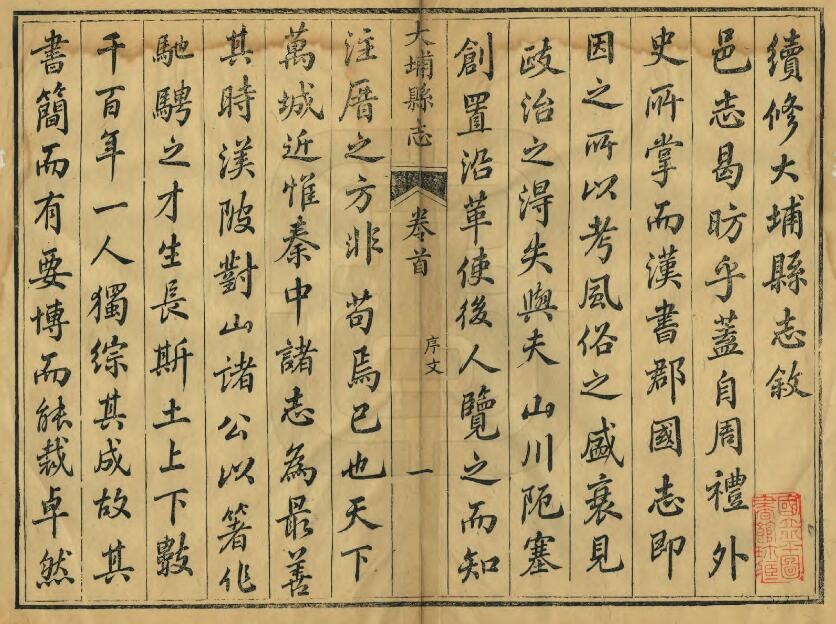 續修大埔縣志敘
邑志曷昉乎蓋自周禮外
史所掌而漢書郡國志即
因之所以考風俗之盛衰見
政治之得失與夫山川阨塞
創置沿革使後人覽之而知
大埔縣志
卷首
序文
一
注厝之方非苟焉已也天下
萬城近惟秦中諸志為最善
其時渼陂對山諸公以箸作
馳騁之才生長斯土上下數
千百年一人獨綜其成故其
書簡而有要博而能裁卓然